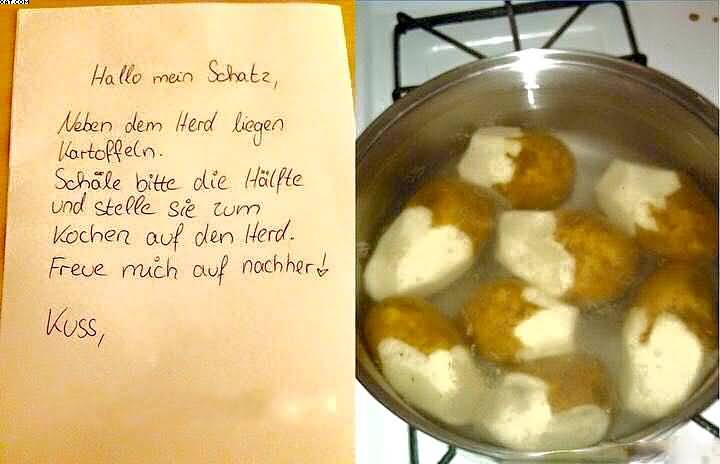 XAT.COM
Hallo mein Schatz,
Neben dem Herd liegen
Kartoffeln.
Schäle bitte die Hälfte
und stelle sie zum
Kochen auf den Herd.
Freue mich auf nachher!
Kuss,